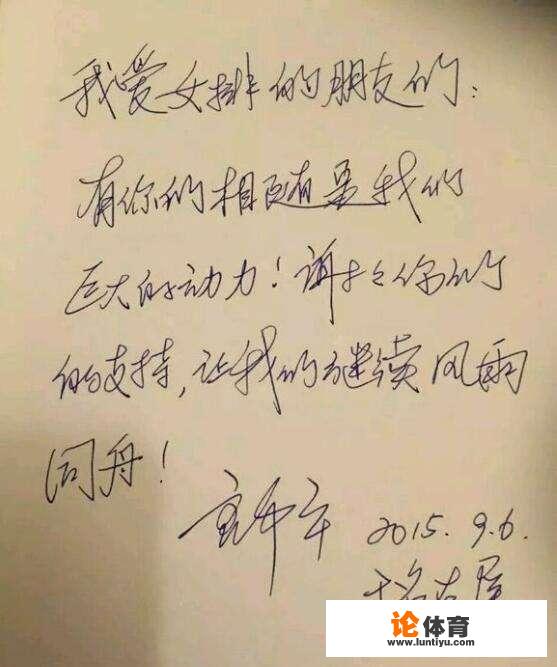 我爱女排的朋友们：
有你们相随是我们
巨大的动力！谢谢你们
的支持，让我们继续风雨
同舟！
2015.9.6.
于名古屋
论体育
www.luntiyu.com